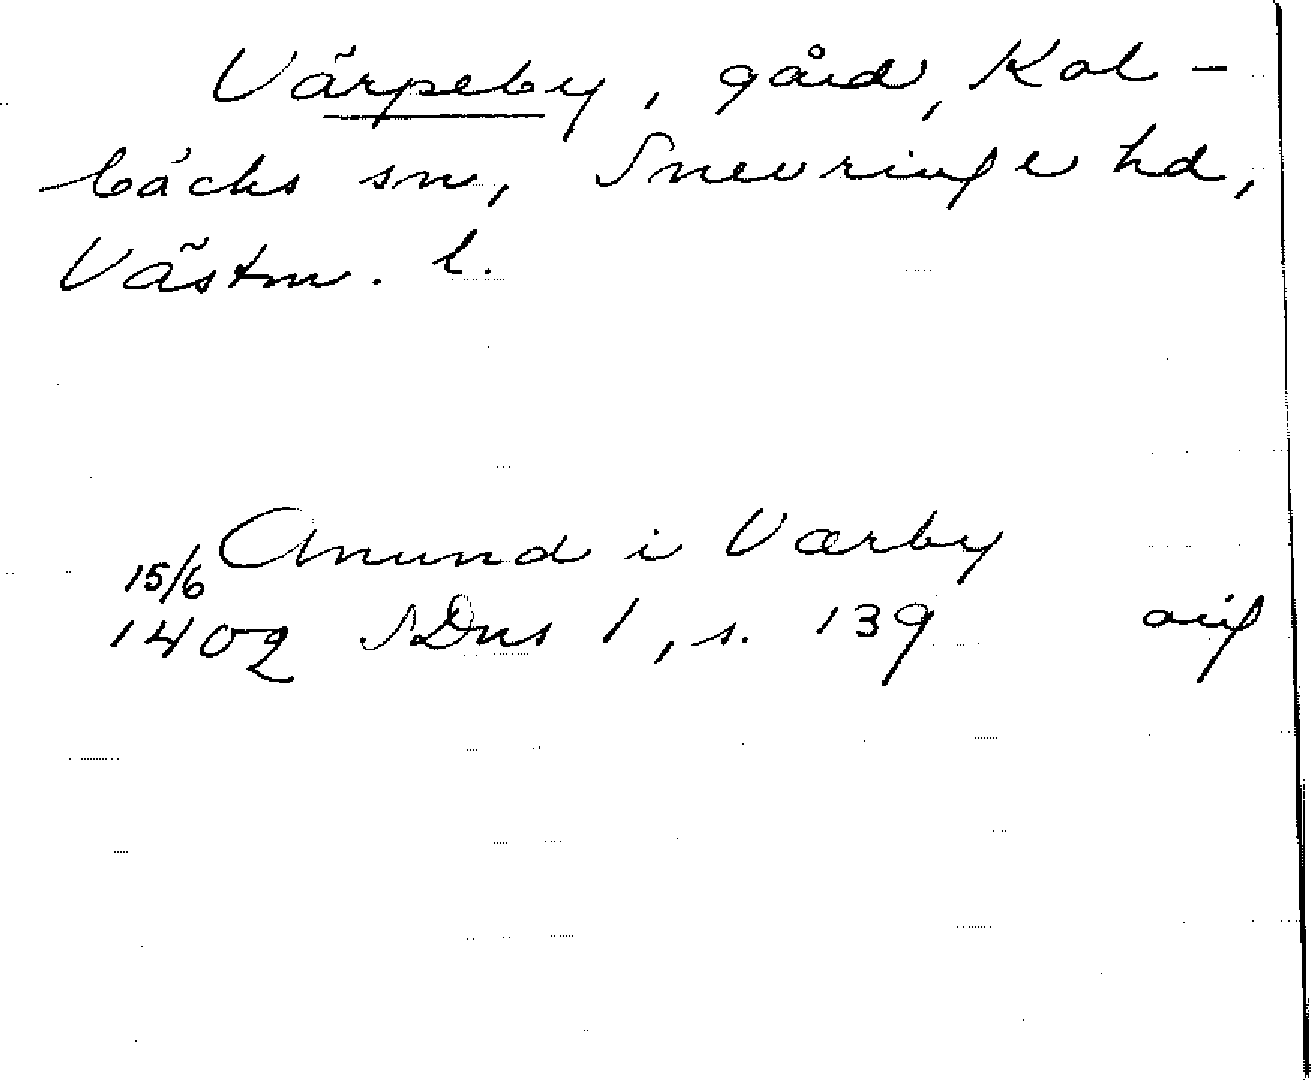 Värpeby, gård, Kol-
bäcks sn, Snevringe hd,
Västm. l.
Anund i Værby
15/6
1402 SDns 1, s. 139 orig